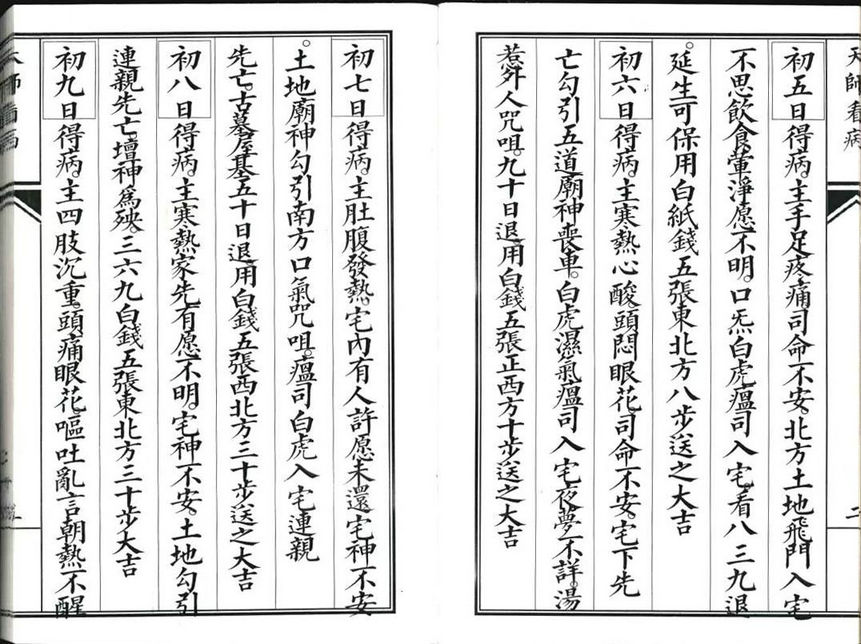 天師看病
二
初五日得病。主手足疼痛司命不安。北方土地飛門入宅
不思飲食葷淨愿不明。口炁白虎瘟司入宅。看八三九退
。延生可保用白紙錢五張東北方八步送之大吉
初六日得病。主寒熱心酸。頭悶眼花司命不安。宅下先
亡勾引五道廟神喪車。白虎濕氣瘟司入宅夜夢不詳。湯
惹外人咒咀。九十日退用白錢五張正西方十步送之大吉
初七日得病。主肚腹發熱。宅內有人許愿未還宅神不安
。土地廟神勾引南方口氣咒咀。瘟司白虎入宅連親
先亡。古墓屋基五十日退用白錢五張西北方三十步送之大吉
初八日得病。主寒熱家先有愿不明。宅神不安。土地勾引
連親先亡壇神爲殃。三六九白錢五張東北方三十步大吉
初九日得病。主四肢沉重。頭痛眼花嘔吐亂言朝熱不醒